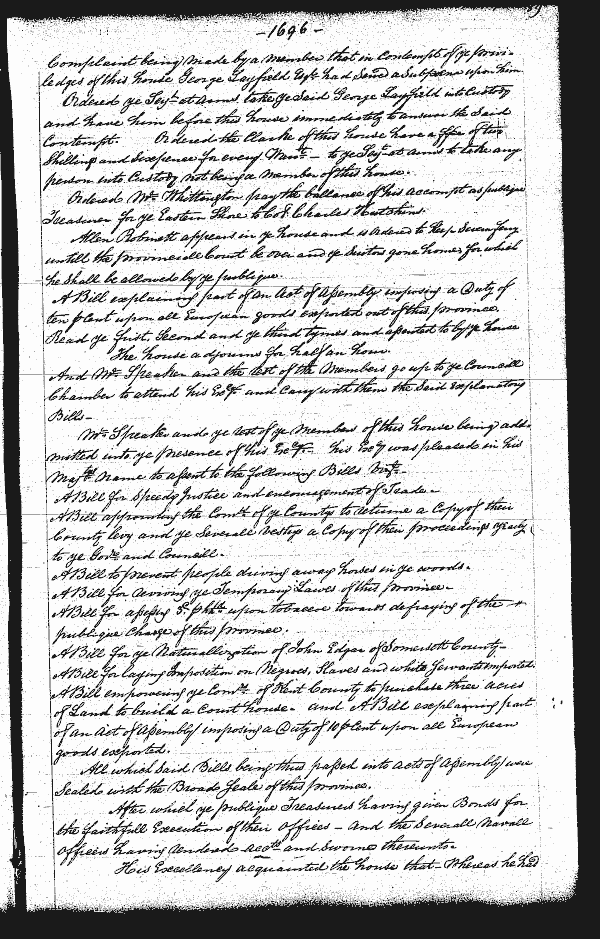 -1696-
Complaint being made by a Member that in Contempt of ye privi-
ledges of this house George Layfield Esqr. had Served a Subpena upon him
Ordered ye Serjt. at Arms take ye Said George Layfield into Custody
and have him before this house immediately to answer the Said
Contempt. Ordered the Clarke of this house have a ffee of two
Shillings and Sixpence for every Warrt. - to ye Serjt. at arms to take any
person into Custody not being a Member of this house.
Ordered Mr. Whittington pay the ballance of his Accompt as publique
Treasurer for ye Eastern Shoar to Col. Charles Hutchins.
Allen Robinett appears in ye house and is ordered to keep
untill the Provinciall Court be over and ye Suitors gone home, for which
he Shall be allowed by ye publique.
A Bill explaining part of an Act of Assembly imposing a Duty of
ten p Cent upon all European goods exported out of this province,
Read ye first, Second and ye third tymes and assented to by ye house
The house adjourns for half an hour.
And Mr. Speaker and the rest of the Members go up to ye Councill
Chamber to attend his Excy. and Carry with them the Said Explanatory
Bills-
Mr. Speaker and ye rest of ye Members of this house being add-
mitted into ye presence of his Excy. his Excy was pleased in his
Majtys Name to assent to the following Bills Vizt.-
A Bill for Speedy Justice and encouragement of Trade-
A Bill appointing the Comrs. of ye County to returne a Copy of their
County Levy and ye Severall Vestrys a Copy of their proceedings yearly
to ye Govr. and Councill.
A Bill to prevent people driving away horses in ye woods.
A Bill for reviving ye Temporary Laws of this Province.
A Bill for assessing upon tobaccoe towards defraying of the
publique Charge of this province.
A Bill for ye Naturallization of John Edgar of Somersett County-
A Bill for laying Imposition on Negroes, Slaves and white Servants imported.
A Bill empowering ye Comrs. of Kent County to purchase three acres
of Land to build a Court house. and A Bill explaining part
of an Act of Assembly imposing a Duty of 10 p Cent upon all European
goods exported.
All which Said Bills being thus passed into Acts of Assembly were
Sealed with the Broad Seale of this province.
After which ye publique Treasurers having given Bonds for
the faithfull Execution of their Offices - And the Severall Navall
Officers having rendered acots. and Sworne thereunto-
His Excellency acquainted the house that - Whereas he had